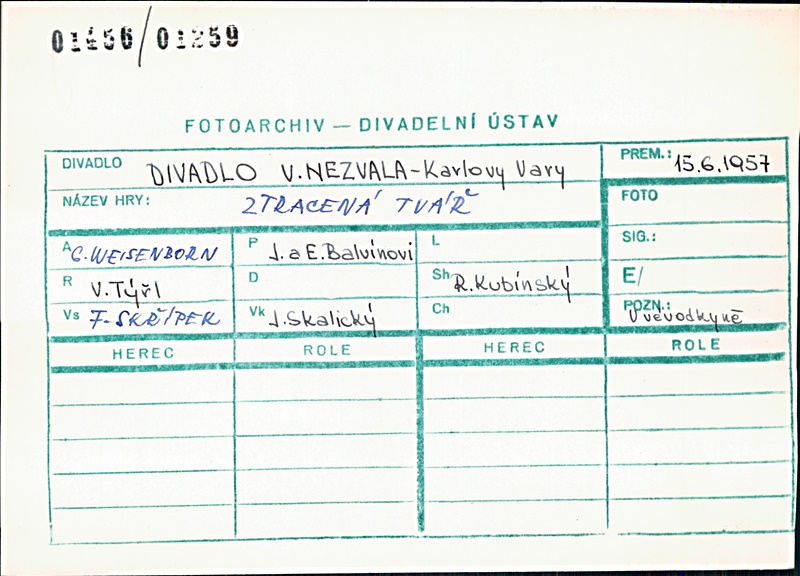 01456/01259
FOTOARCHIV — DIVADELNÍ ÚSTAV
DIVADLO DIVADLO V. NEZVALA - Karlovy Vary
PREM.: 15.6.1957
NÁZEV HRY: ZTRACENÁ TVÁŘ
FOTO
A G. WEISENBORN P J. a E. Balvínovi L
SIG.:
R V. Týřl D Sh R. Kubínský
E/
Vs F. SKŘÍPEK Vk J. Skalický Ch
POZN.: U vévodkyně
HEREC ROLE HEREC ROLE